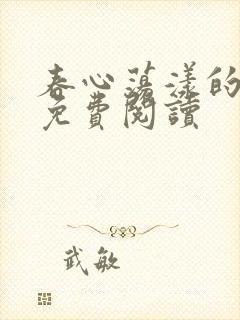 春心蕩漾的
免費閱讀
武敏